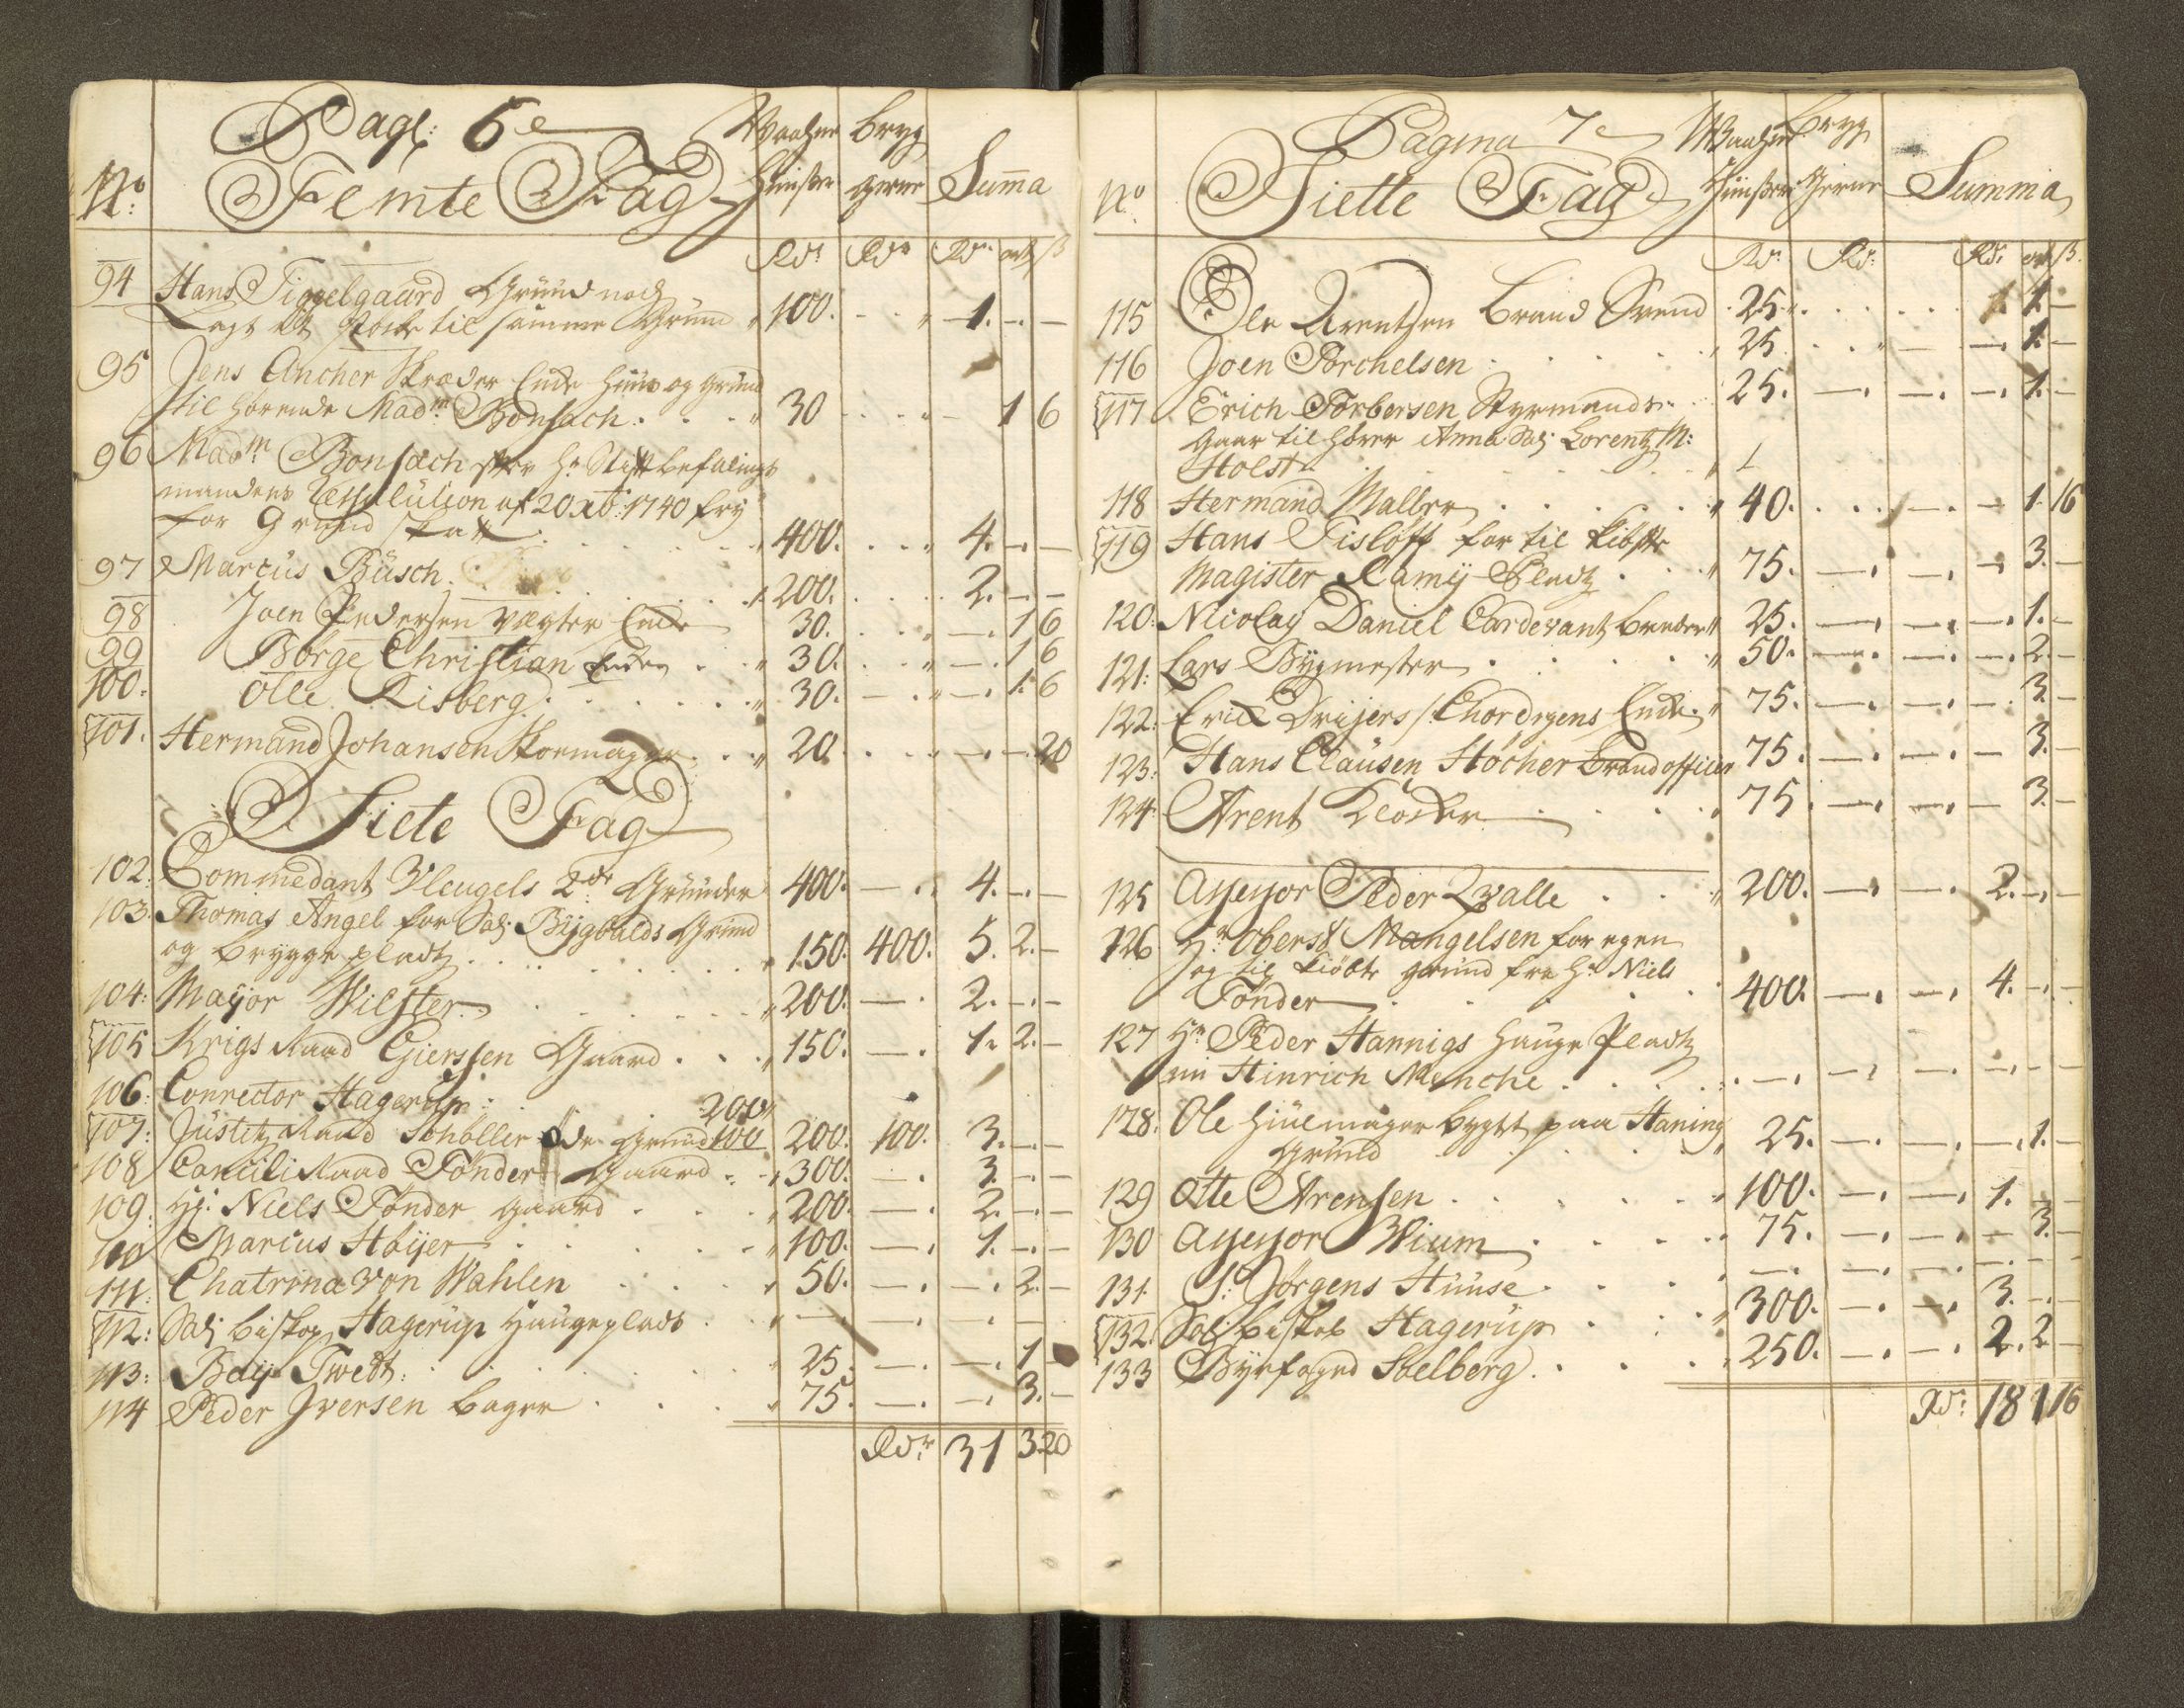 Pag: 6
No
Femte Fag
Waahne Huuser
Bryg gerne
Summa
Rdr Rdr Rdr ort ß
94 Hans Tiggelgaard Gründ nock
Lagt til samme Gründ 100. 1. - -
95 Jens Ancher Skræder Enke Huus og Gründ
til hørende Madm Bonsach 30 1 6
96 Madm Bonsach Hr Stiftbefalings
mandens Resolution af 20 1740 fry
for Grund skatt 400. 4. - -
97 Marcus Büsch 200. 2. - -
98 Joen Pedersen Vægter Enke 30. - 1 6
99 Börge Christian Enke 30. - 1 6
100. Olle Risberg 30. - 1. 6
101. Hermand Johansen Skomager 20 - - 20
Siete Fag
102. Commedant Vleugels 2de Gründer 400. - 4. - -
103. Thomas Angel for Sal: Bygbalds Gründ
og brygge pladtz 150. 400. 5. 2. -
104: Mayor Wilster 200. - 2. - -
105 Krigs Raad Gierssen Gaard 150. - 1. 2. -
106: Conrector Hagerup 200
107: Justitz Raad Schøller Gründ 100 200. 100. 3. - -
108 Cancili Raad Tønder Gaard 300. - 3. - -
109: Hr: Niels Tønder gaard 200. - 2. - -
110 Marcus Höyer 100. - 1. - -
111: Chatrina von Wahlen 50. - - 2. -
112: Sal: biskop Hagerup Haugeplads - - - -
113: Bay Twedt 25. - - 1 -
114 Peder Iversen bager 75. - - 3. -
Rdr 31 3 20
Pagina 7
No
Siette Fag
Waahne Huuser
Bryg Gerne
Summa
Rdr Rdr Rdr ort ß.
115 Ole Arentsen Brand Svend 25. 1. -
116 Joen Torchelsen 25 - - 1. -
117 Erich Torbersen Styrmands 25. - - 1. -
gaar til hører Anna Sal: Lorentz M:
Holst
118 Hermand Maller 40. - - 1. 16
119 Hans Fisløff for til kiöbte
Magister Ramy Pladtz 75. - - 3. -
120: Nicolay Daniel Cardevantz bereder 25. - - 1. -
121: Lars Bygmester 50. - - 2. -
122: Erich Drejers / Chordrgens Enke 75. - - 3. -
123: Hans Claüsen Höcher Brandofficer 75. - - 3. -
124: Arent Kloster 75. - - 3. -
125 Assessor Peder Qvalle 200. - - 2. - -
126 Hr Oberst Mangelsen for egen
og til kiöbte grund fra Hr Niels
Tønder 400. - - 4. - -
127 Hr Peder Hannigs Hauge Pladtz
nu Hinrich Menche - - - - -
128. Ole Hiülmager bygt paa Haning
Gründ 25. - - - 1. -
129 Otte Arensen 100. - - 1. - -
130 Assessor Wium 75. - - - 3. -
131. St: Jörgens Huuse - - - - -
132. Sal: biskop Hagerup 300. - - 3. - -
133 Byefoged Stelberg 250. - - 2. 2 -
Rdr: 18 1 16